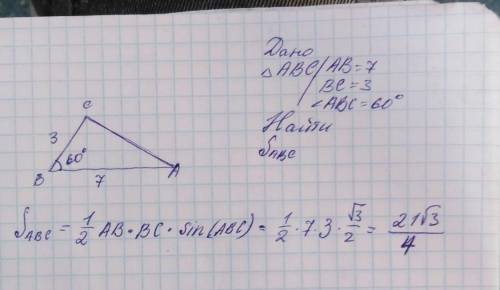 Дано
△ABC / AB=7
BC=3
∠ABC=60°
Найти
S_ABC
C
3
60°
B
7
A
S_ABC = 1/2 AB · BC · Sin(ABC) = 1/2 · 7 · 3 · √3/2 = 21√3/4